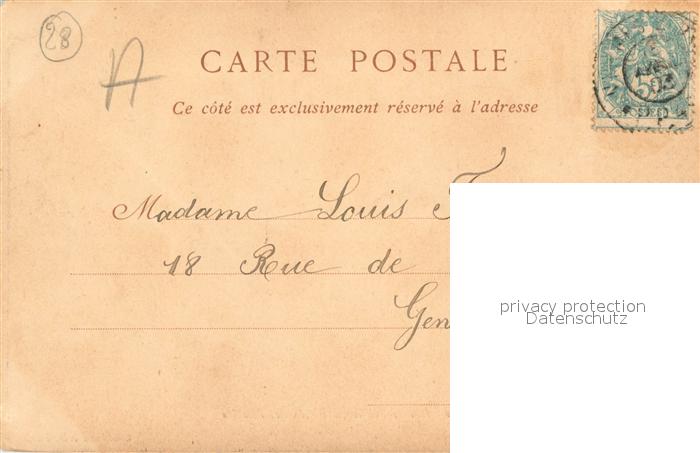 28
A
CARTE POSTALE
Ce côté est exclusivement réservé à l'adresse
Madame Louis F
18 Rue de
Gen
privacy protection
Datenschutz